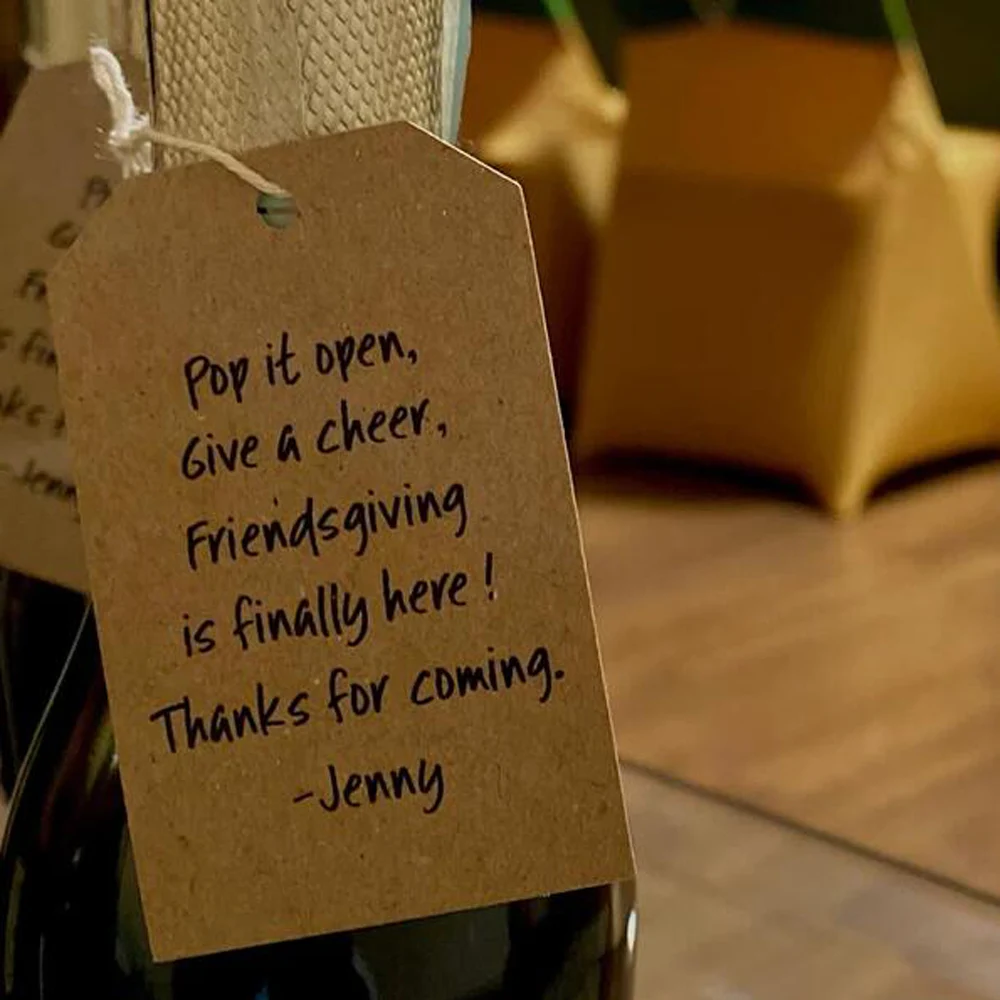 Pop it open,
Give a cheer,
Friendsgiving
is finally here!
Thanks for coming.
-Jenny